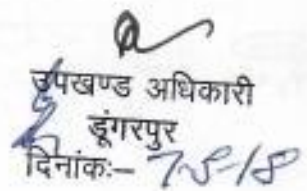 उपखण्ड अधिकारी
डूंगरपुर
दिनांक:– 7-8-18